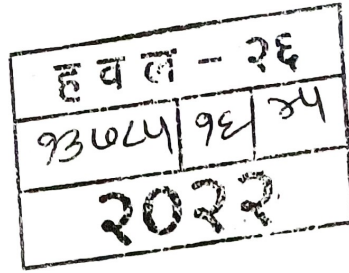 हवल - २६
१३७८५ १६ २५
२०२२